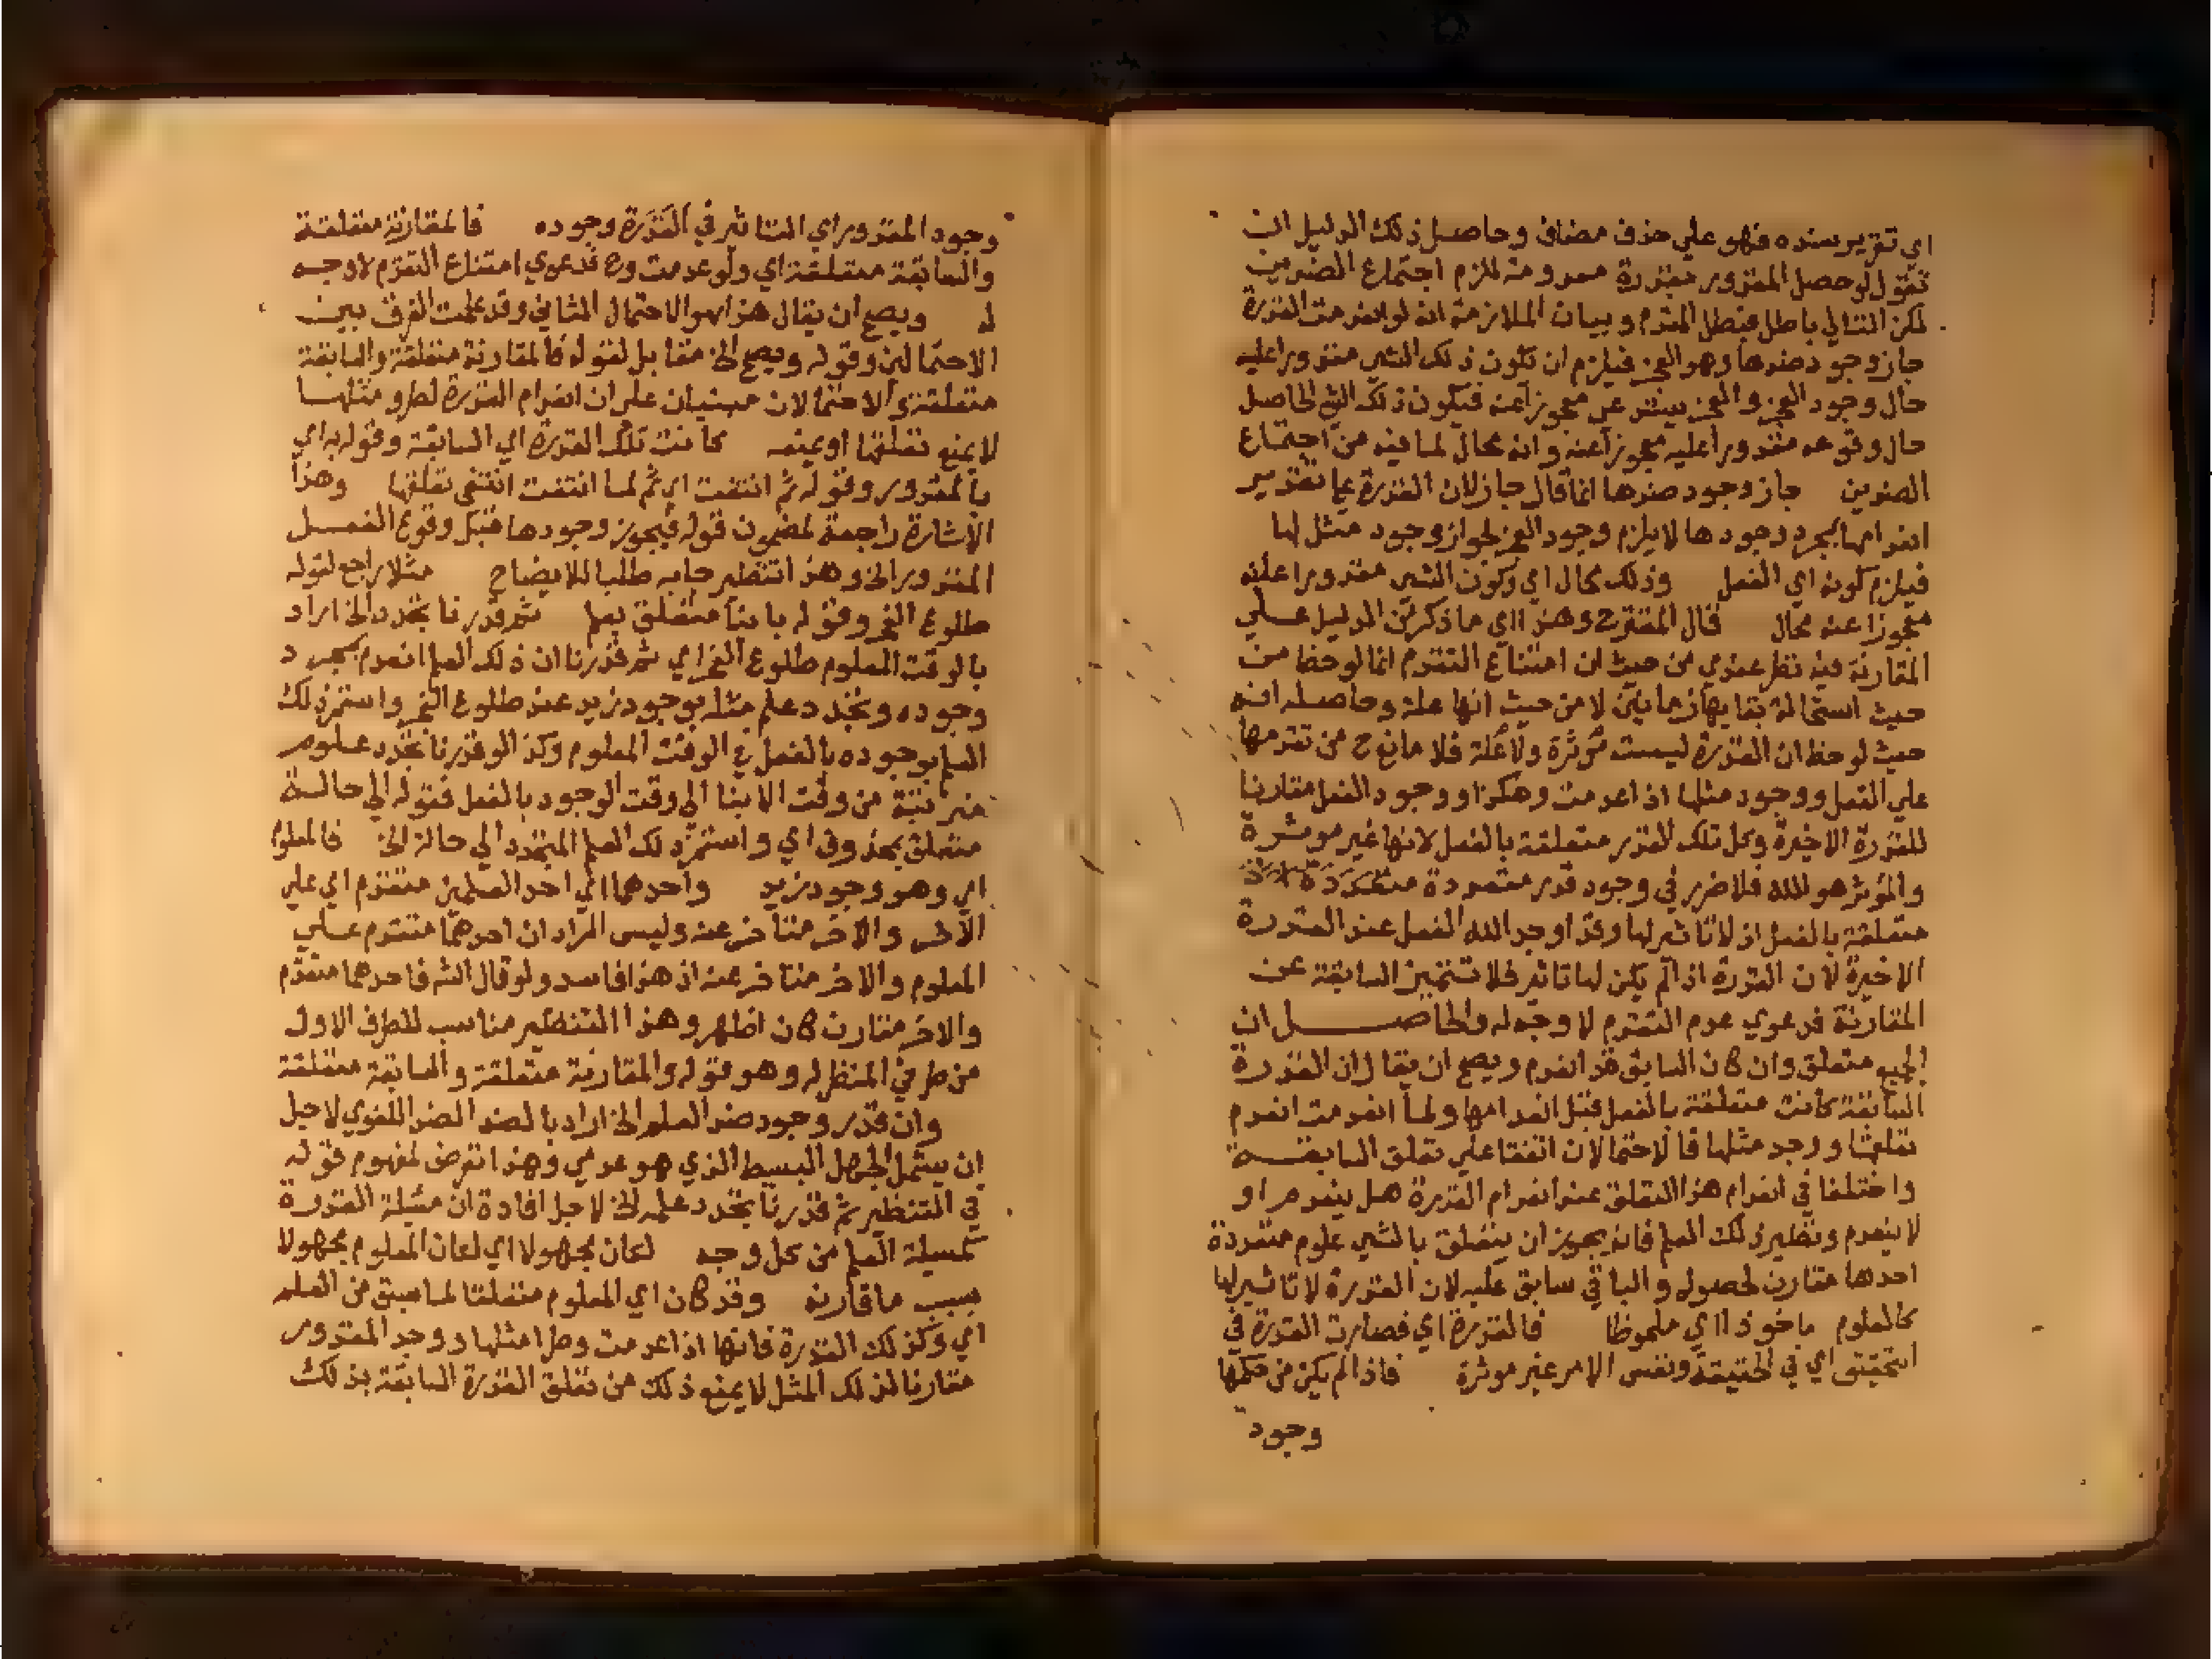 اي تقرير سنده فهو علي حذف مضاف وحاصل ذلك الدليل ان
تقول لو حصل المقدور بقدرة معدومة للزم اجتماع الضدين
لكن التالي باطل فبطل المقدم وبيان الملازمة انه لو انعدمت القدرة
جاز وجود ضدها وهو العجز فيلزم ان تكون ذلك الشي مقدورا عليه
حال وجود العجز والعجز يستدعي معجوزا عنه فيكون ذلك الشي الحاصل
حال وقوعه مقدورا عليه معجوزا عنه وانه محال لما فيه من اجتماع
الضدين جاز وجود ضدها انما قال جاز لان القدرة بما تقدير
انعدامها بمجرد وجودها لا يلزم وجود العجز لجواز وجود مثل لها
فيلزم كونه اي الفعل وذلك محال اي وكون الشي مقدورا عليه
معجوزا عنه محال قال المقترح وهذا اي ما ذكر من الدليل علي
المقارنة فيه نظر عندي من حيث ان امتناع التقدم انما لوحظ من
حيث استحالة بقايها زمانين لا من حيث انها علة وحاصله انه
حيث لوحظ ان القدرة ليست مؤثرة ولا علة فلا مانع ح من تقدمها
علي الفعل ووجود مثلها اذا عدمت وهكذا ووجود الفعل مقارنا
للقدرة الاخيرة وكل تلك القدر متعلقة بالفعل لانها غير موثرة
والمؤثر هو الله فلا ضرر في وجود قدر متعددة
متعلقة بالفعل اذ لا تاثير لها وقد اوجد الله الفعل عند القدرة
الاخيرة لان القدرة اذا لم يكن لها تاثير فلا تتميز السابقة عن
المقارنة فدعوي عدم التقدم لا وجه له والحاصل ان
الجميع متعلق وان كان السابق قد انعدم ويصح ان يقال ان القدرة
السابقة كانت متعلقة بالفعل قبل انعدامها ولما انعدمت انعدم
تعلقها ووجد مثلها فالاحتمالان اتفقا علي تعلق السابقة
واختلفا في انعدام هذا التعلق عند انعدام القدرة هل ينعدم او
لا ينعدم ونظير ذلك العلم فانه يجوز ان يتعلق بالشي علوم متعددة
احدها مقارن لحصوله والباقي سابق عليه لان القدرة لا تاثير لها
كالعلوم ماخوذا اي ملحوظا فالقدرة اي فصارت القدرة في
التحقيق اي في الحقيقة ونفس الامر غير موثرة فاذا لم يكن من حكمها
وجود
وجود المقدور اي التاثير في القدرة وجوده فالمقارنة متعلقة
والسابقة متعلقة اي ولو عدمت وح فدعوي امتناع التقدم لا وجه
له ويصح ان يقال هذا هو الاحتمال الثاني وقد علمت الفرق بين
الاحتمالين وقوله ويصح الخ مقابل لقوله فالمقارنة متعلقة والسابقة
متعلقة والاحتمالان مبنيان علي ان انعدام القدرة لطرو مثلها
لا يمنع تعلقها او يمنعه كانت تلك القدرة اي السابقة وقوله به اي
بالمقدور وقوله ثم انتفت اي ثم لما انتفت انتفي تعلقها وهذا
الاشارة راجعة لمضمون قوله فيجوز وجودها قبل وقوع الفعل
المقدور الخ وهذا تنظير جا به طلبا للايضاح مثلا راجع لقوله
طلوع الفجر وقوله باننا متعلق بعلم ثم قدرنا تجدد الخ اراد
بالوقت المعلوم طلوع الفجر اي ثم قدرنا ان ذلك العلم انعدم بمجرد
وجوده وتجدد علم مثله بوجود زيد عند طلوع الفجر واستمر ذلك
العلم بوجوده بالفعل في الوقت المعلوم وكذا لو قدرنا تجدد علوم
مترتبة من وقت الانبا الي وقت الوجود بالفعل فقوله الي حالة
متعلق بمحذوف اي واستمر ذلك العلم المتجدد الي حالة الخ فالمعلوم
اي وهو وجود زيد واحدهما اي احد العلمين متقدم اي علي
الاخر والاخر متاخر عنه وليس المراد ان احدهما متقدم علي
المعلوم والاخر متاخر عنه اذ هذا فاسد ولو قال الش فاحدهما متقدم
والاخر مقارن كان اظهر وهذا التنظير مناسب للطرف الاول
من طرفي المنظر له وهو قوله والمقارنة متعلقة والسابقة متعلقة
وان قدر وجود ضد العلم الخ اراد بالضد الضد اللغوي لاجل
ان يشمل الجهل البسيط الذي هو عدمي وهذا تعرض لمفهوم قوله
في التنظير ثم قدرنا تجدد علم الخ لاجل افادة ان مسئلة القدرة
كمسيلة العلم من كل وجه لكان مجهولا اي لكان المعلوم مجهولا
بسبب ما قارنه وقد كان اي المعلوم متعلقا لما سبق من العلم
اي وكذلك القدرة فانها اذا عدمت وطرا مثلها ووجد المقدور
مقارنا لذلك المثل لا يمنع ذلك من تعلق القدرة السابقة بذلك